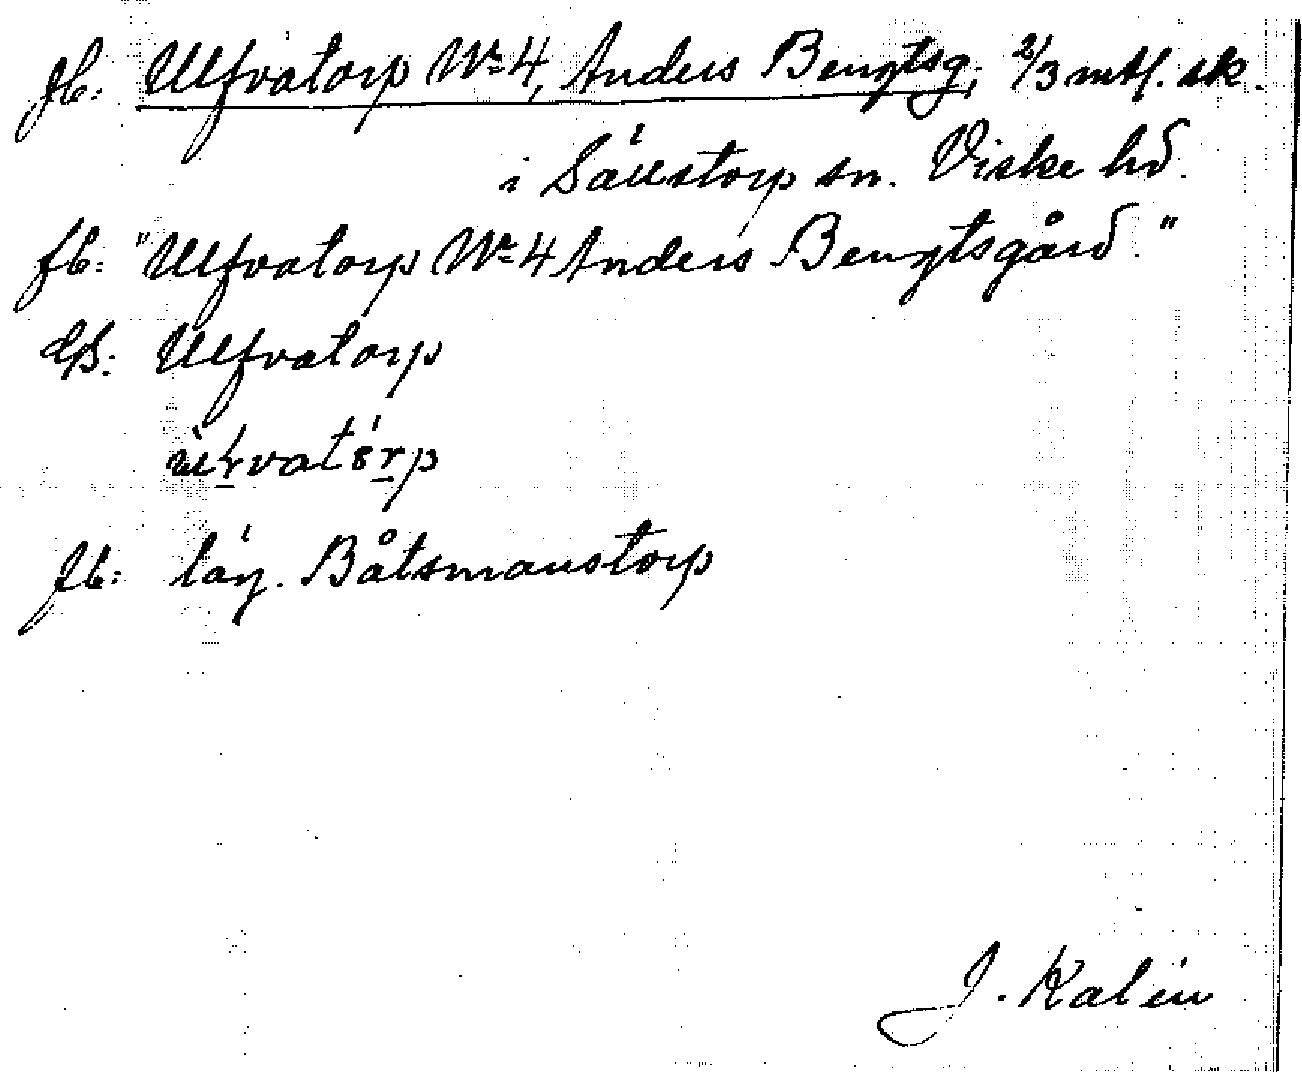 fb: Ulfvatorp No 4, Anders Bengtsg, 2/3 mtl. sk.
i Sällstorp sn. Viske hd.
fb: "Ulfvatorp No 4 Anders Bengtsgård."
Ulfvatorp
fb: läg. Båtsmanstorp
J. Kalén